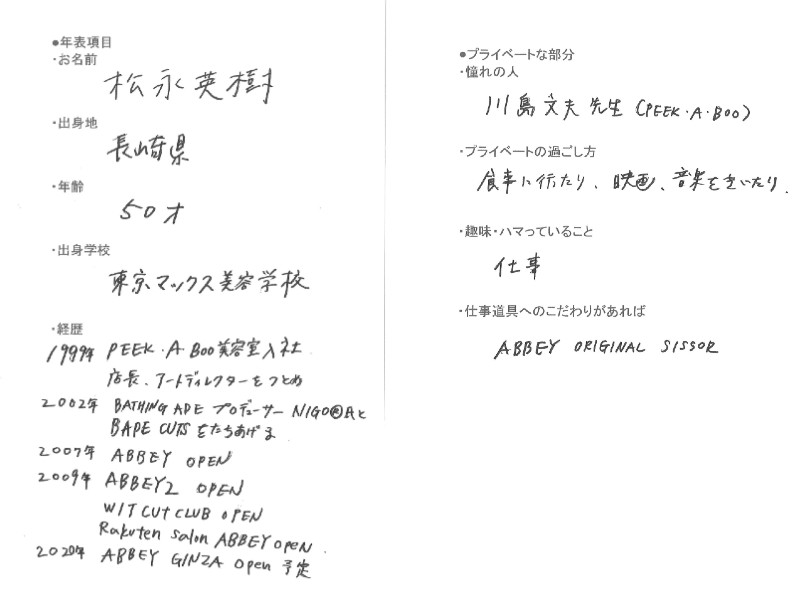 ●年表項目
・お名前
松永英樹
・出身地
長崎県
・年齢
50才
・出身学校
東京マックス美容学校
・経歴
1999年 PEEK・A・BOO美容室入社
店長、アートディレクターをつとめ
2002年 BATHING APE プロデューサー NIGO®氏と
BAPE CUTSをたちあげる
2007年 ABBEY OPEN
2009年 ABBEY2 OPEN
WIT CUt CLUB OPEN
Rakuten salon ABBEY OPeN
2020年 ABBEY GINZA Open 予定
●プライベートな部分
・憧れの人
川島文夫先生（PEEK・A・BOO）
・プライベートの過ごし方
食事に行たり、映画、音楽をきいたり.
・趣味・ハマっていること
仕事
・仕事道具へのこだわりがあれば
ABBEY ORIGINAL SISSOR